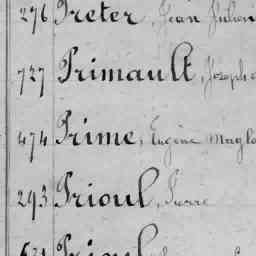 276 Preter, Jean Julien
727 Primault, Joseph
474 Prime, Eugène Magl
293 Prioul, Pierre
631 Prioul